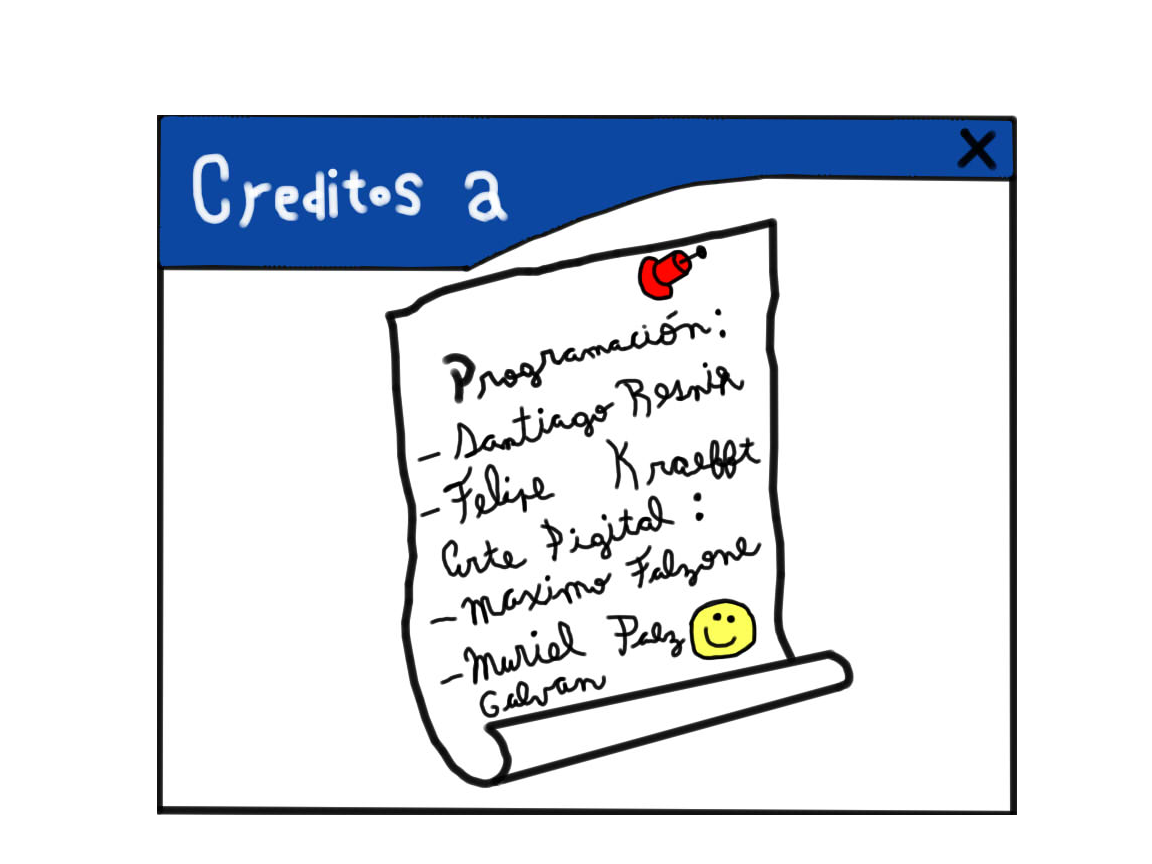 Creditos a
Programación:
- Santiago Resnik
- Felipe Kraefft
Arte Digital :
- Maximo Falzone
- Muriel Palz
Galvan